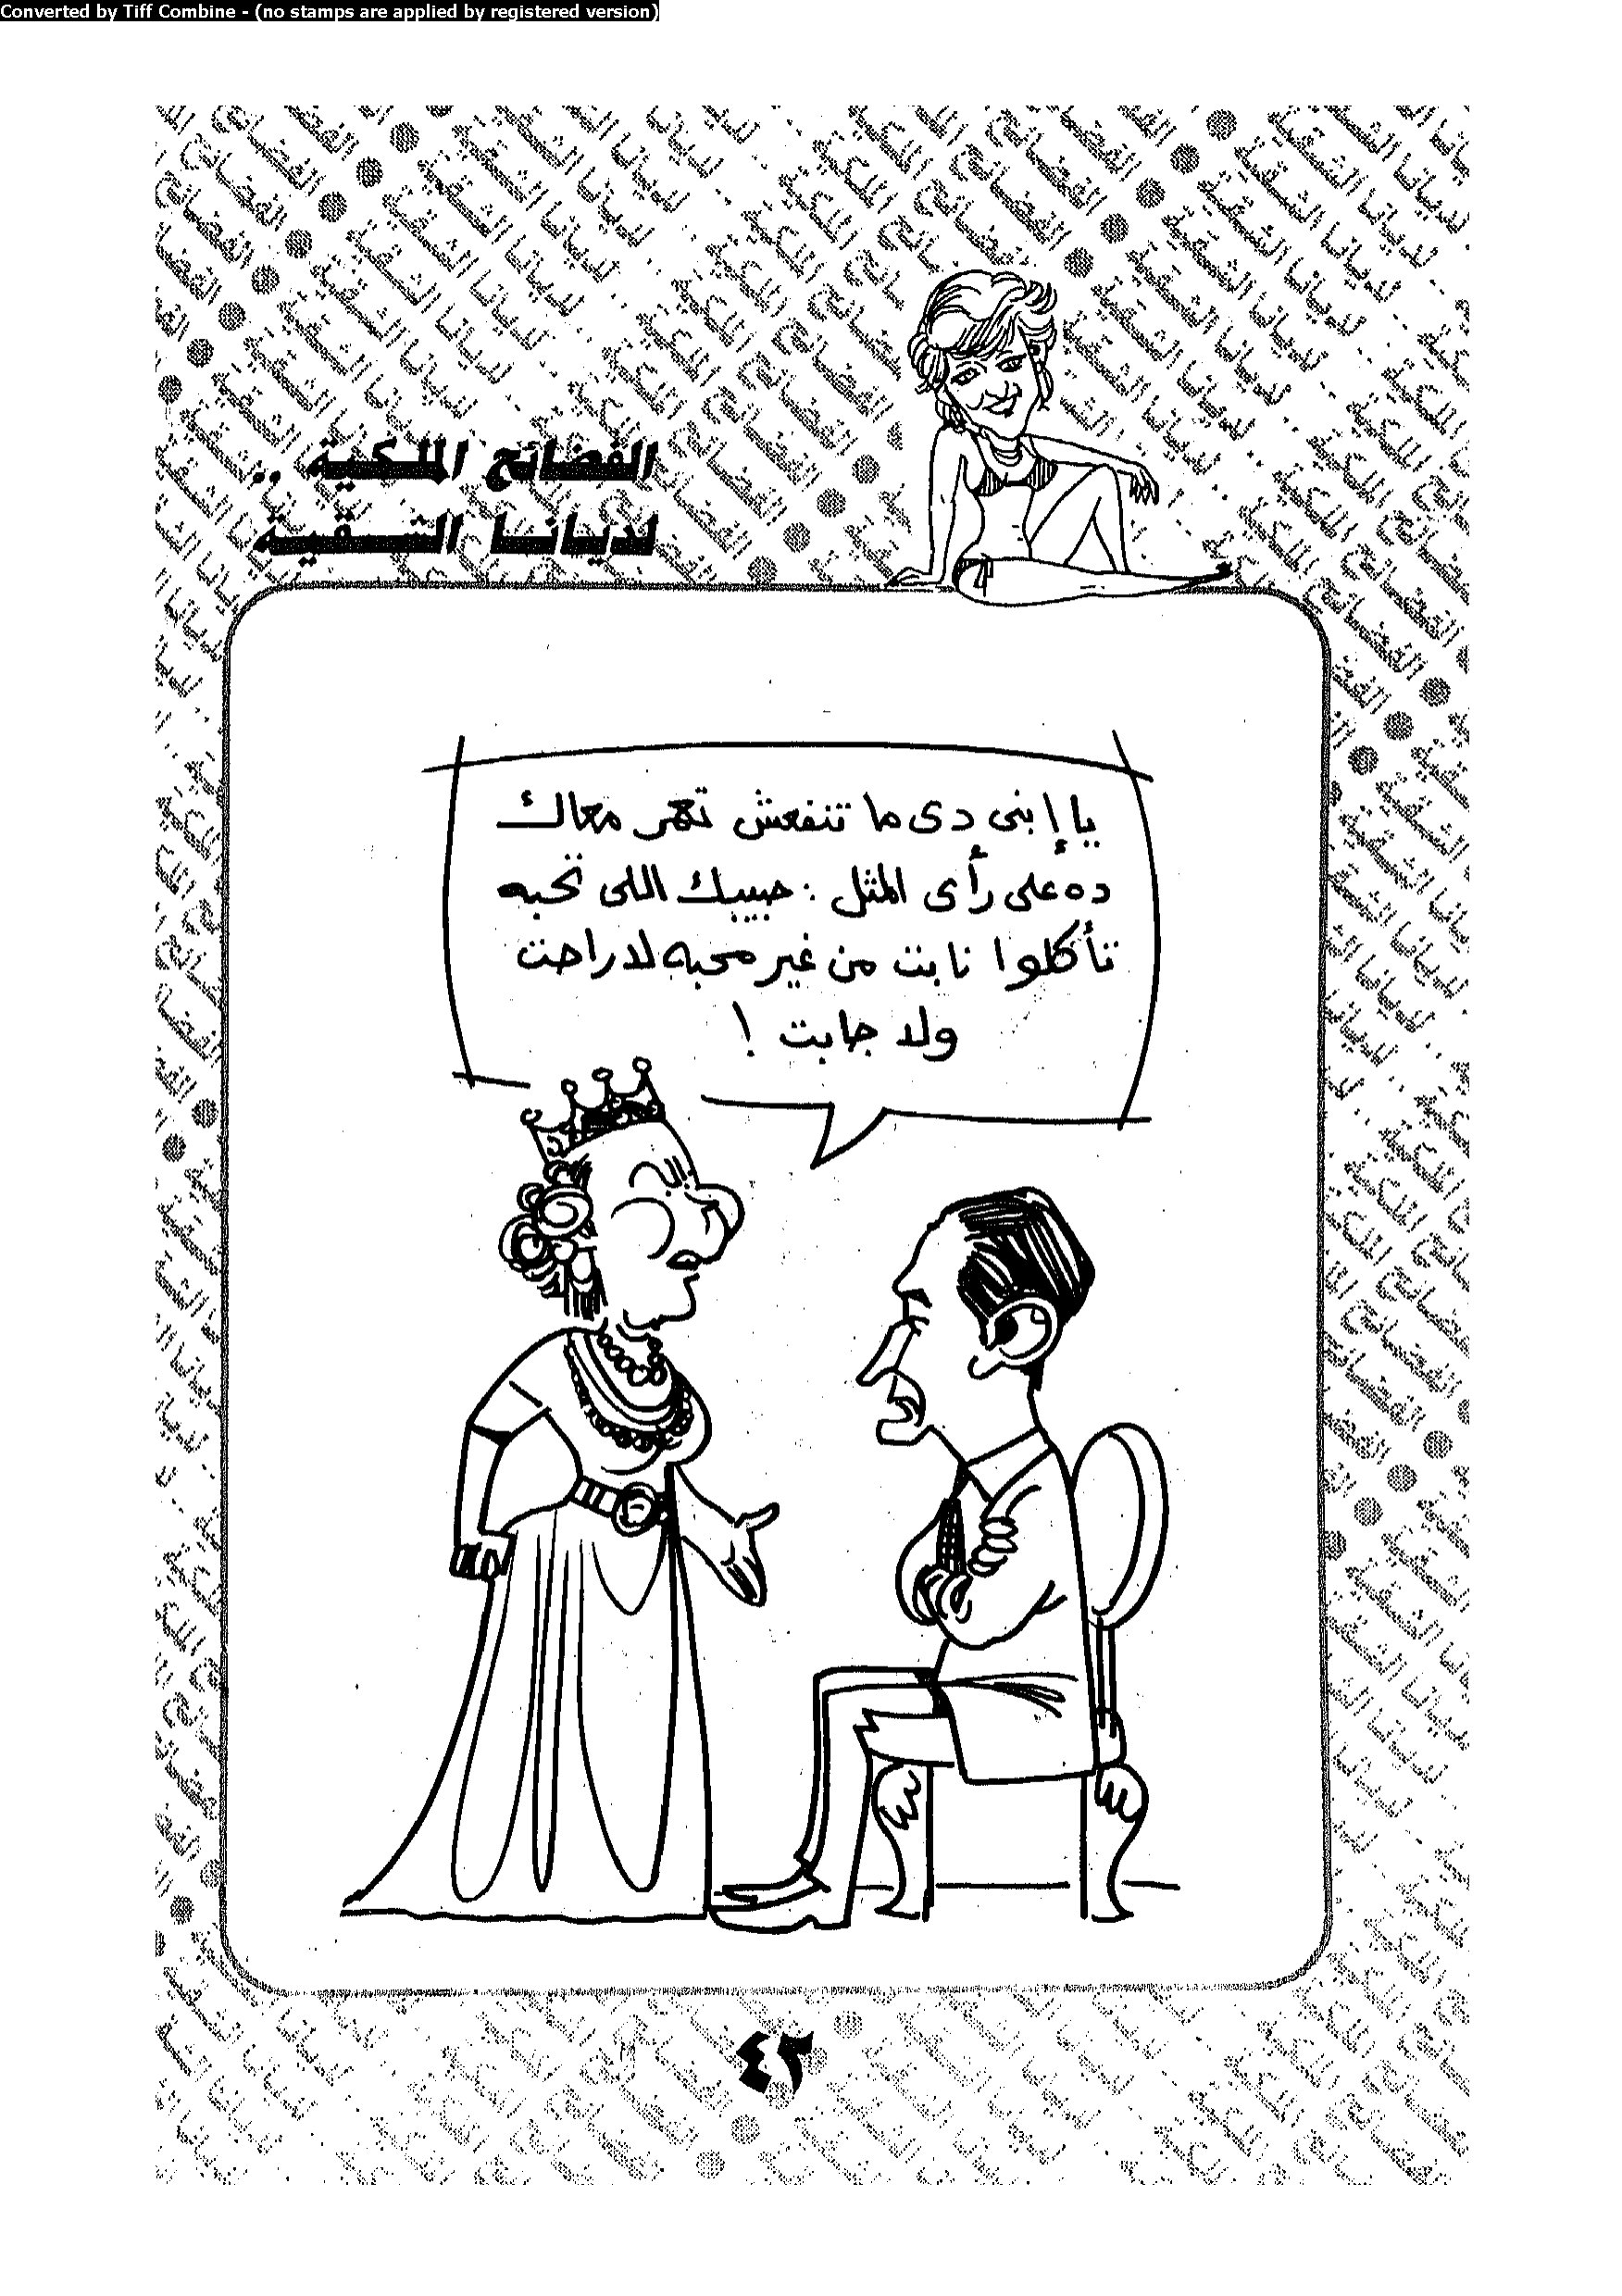 Converted by Tiff Combine - (no stamps are applied by registered version)
الفضائح الملكية ..
لديانا الشقية
يا إبنى دى ما تنفعش تعمر معاك
ده على رأى المثل : حبيبك اللى تحبه
تأكلوا نابت من غير محبه لا راحت
ولا جابت !
٤٣